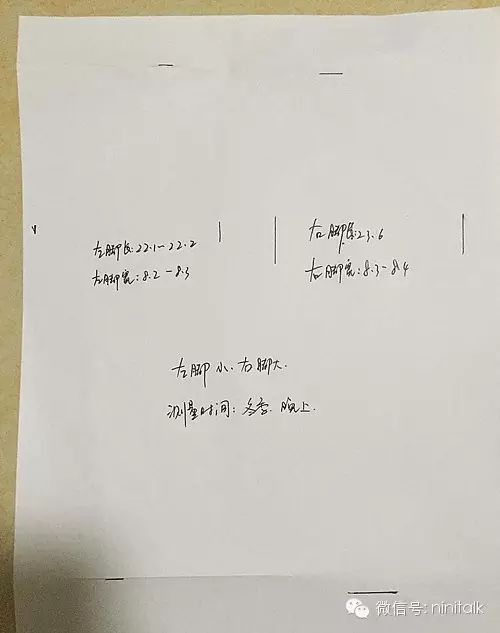 左脚长:22.1～22.2
左脚宽:8.2-8.3
右脚长:23.6
右脚宽:8.3-8.4
左脚小.右脚大.
测量时间:冬季.晚上.
微信号: ninitalk